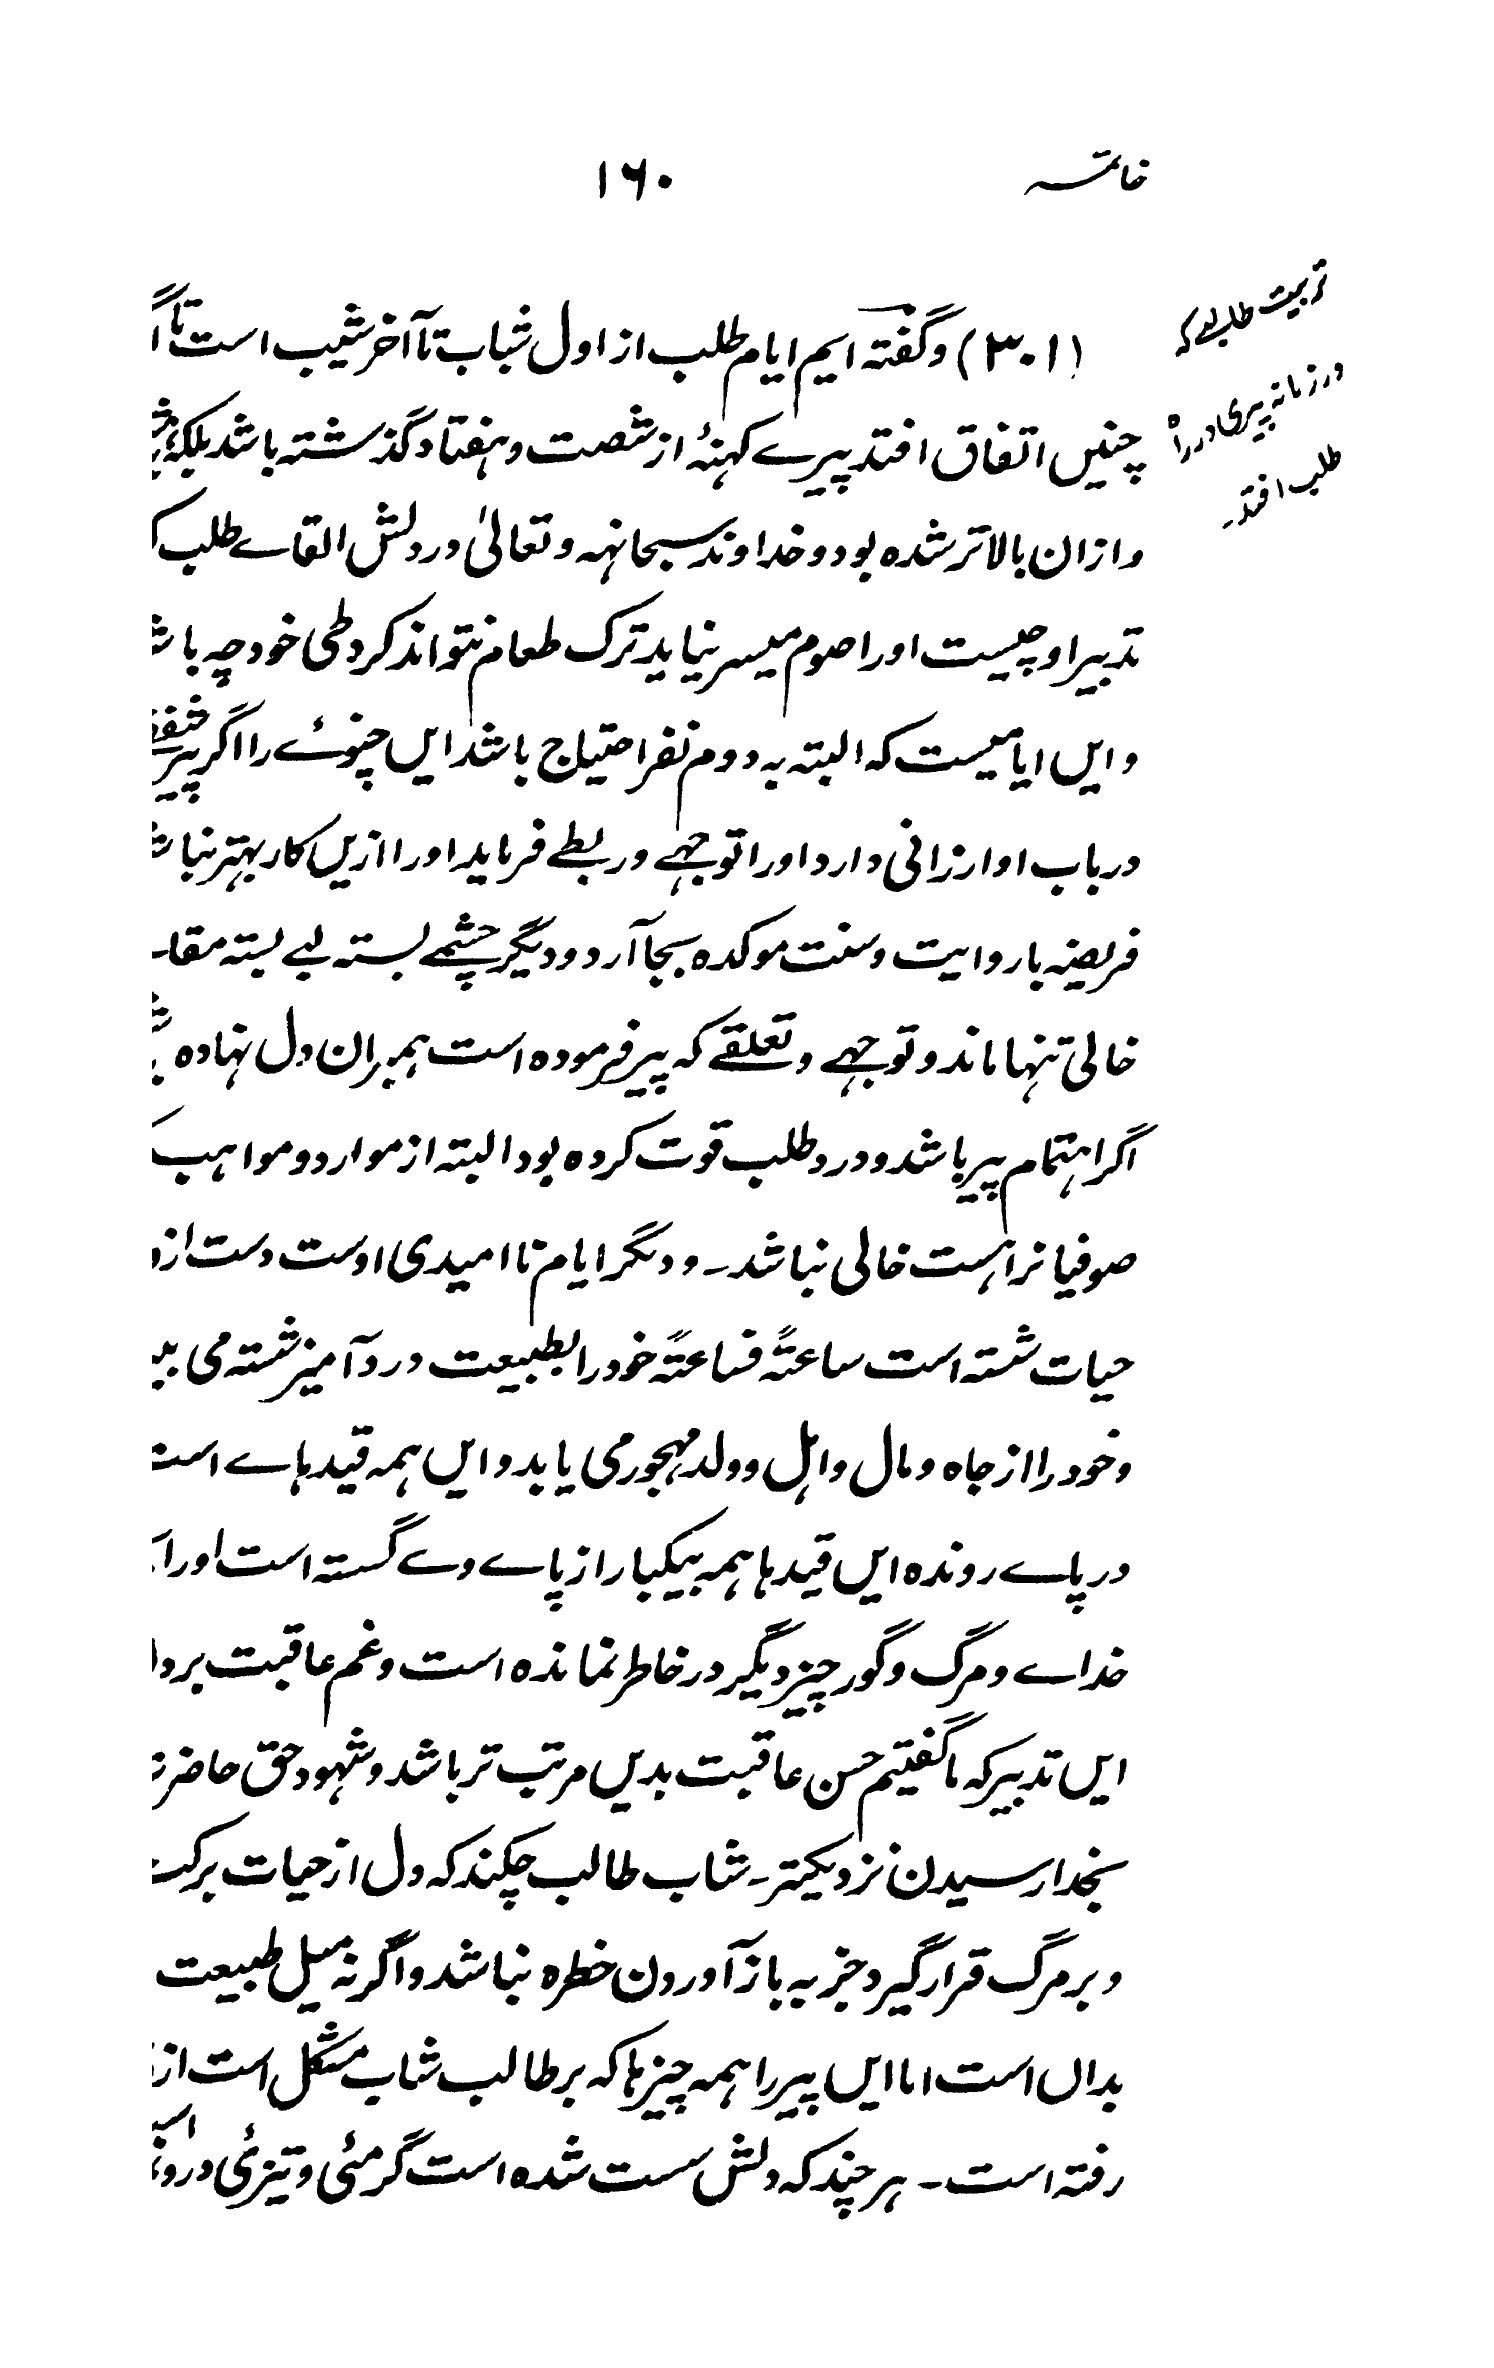 خاتمہ
۱۶۰
تربیت طالبے کہ
در زمانہ پیری در راہ
طلب افتد۔
(۳۰۱) و گفتہ ایم ایام طلب از اول شباب تا آخر شیب است تا
چنیں اتفاق افتد پیرے کہنۂ از شصت و ہفتاد گذشتہ باشد بلکہ
و ازان بالاتر شدہ بود و خداوند سبحانہ و تعالیٰ در دلش القاے طلب
تدبیر او چیست اورا صوم میسر نیاید ترک طعام نتواند کرد طی خود چہ
و ایں ایامیست کہ البتہ بہ دوم نفر احتیاج باشد ایں چنوئے را اگر پیر
در باب او ارزانی دارد اورا توجہے و ربطے فرماید اورا ازیں کار بہتر
فریضہ با روایت و سنت موکدہ بجا آرد و دیگر چشمے بستہ لبے بستہ
خالی تنہا ماند و توجہے و تعلقے کہ پیر فرمودہ است ہمبران دل نہادہ
اگر اہتمام پیر باشد و درد طلب قوت کردہ بود البتہ از موارد و مواہب
صوفیانرا ہست خالی نباشد۔ و دیگر ایام ناامیدی اوست دست از
حیات شستہ است ساعتہً فساعتہً خود را بطبیعت درد آمیز شستہ می
و خود را از جاہ و مال و اہل و ولد مہجور می یابد و ایں ہمہ قیدہاے
در پاے روندہ ایں قیدہا ہمہ بیکبار از پاے وے گسستہ است اورا
خداے و مرگ و گور چیز دیگر در خاطر نماندہ است و غم عاقبت
ایں تدبیر کہ ما گفتیم حسن عاقبت بدیں مرتب تر باشد و شہود حق حاضر
بخدا رسیدن نزدیکتر۔ شاب طالب چکند کہ دل از حیات
و بر مرگ قرار گیرد جز بہ باز آوردن خطرہ نباشد واگرنہ میل طبیعت
بداں است اما ایں پیر را ہمہ چیزہا کہ بر طالب شاب مشکل است
رفتہ است۔ ہر چند کہ دلش سست شدہ است گرمئی و تیزئی